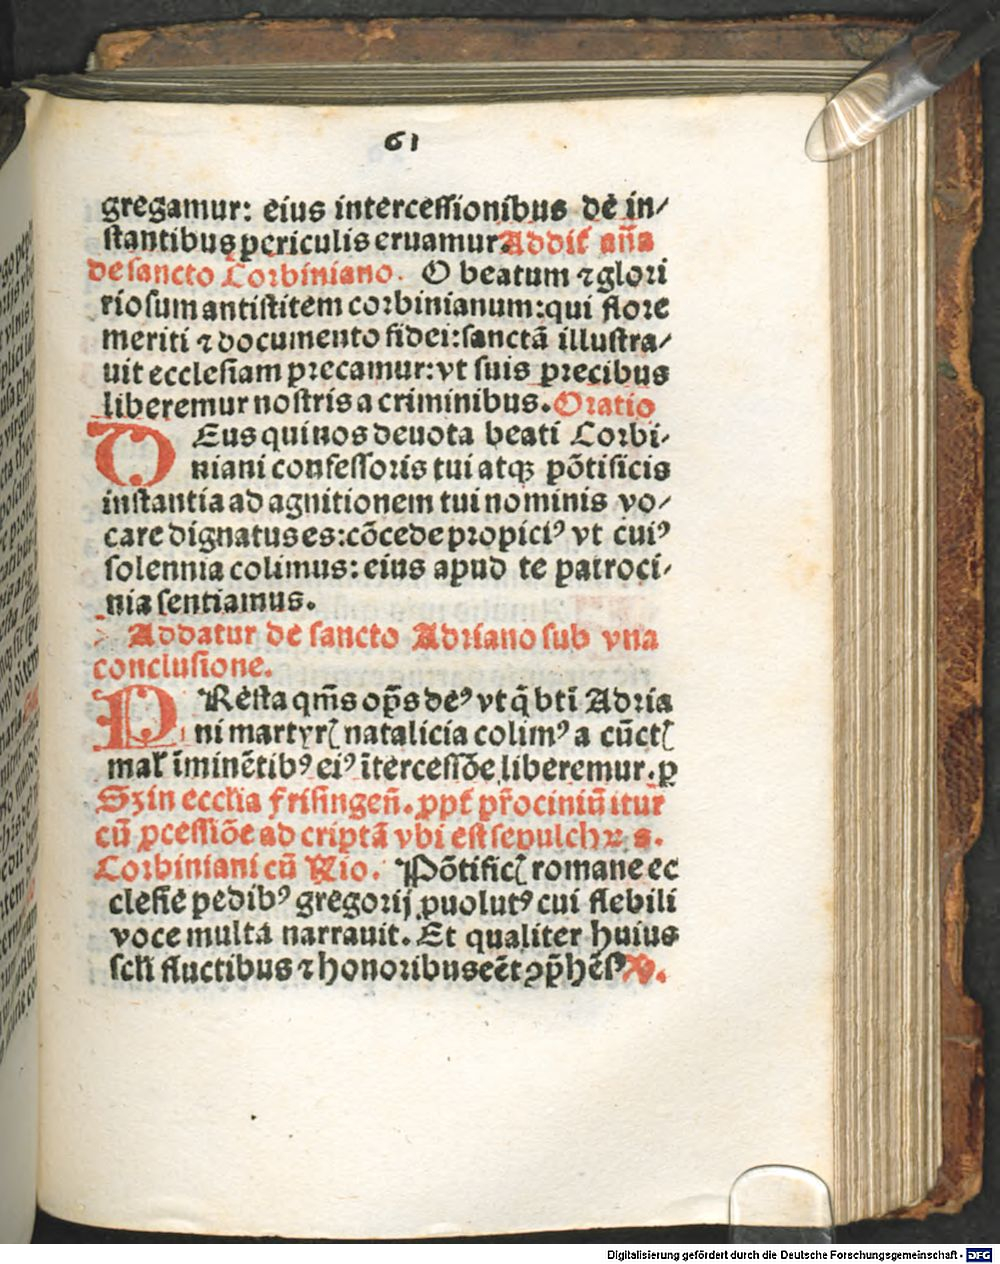 61
gregamur: eius intercessionibus de in⸗
stantibus periculis eruamur. Addit͛ aña
de sancto Corbiniano. O beatum ⁊ glori
riosum antistitem corbinianum: qui flore
meriti ⁊ documento fidei: sanctā illustra⸗
uit ecclesiam precamur: vt suis precibus
liberemur nostris a criminibus. Oratio
DEus qui nos deuota beati Corbi⸗
niani confessoris tui atqꝫ pōtificis
instantia ad agnitionem tui nominis vo⸗
care dignatus es: cōcede propiciꝰ vt cuiꝰ
solennia colimus: eius apud te patroci⸗
nia sentiamus.
Addatur de sancto Adriano sub vna
conclusione.
PResta qm̄s op̄s deꝰ vt q̄ bti Adria
ni martyrꝭ natalicia colimꝰ a cūctꝭ
mal͛ īminētibꝰ eiꝰ ītercessiōe liberemur. ꝑ
Sꝫ in ecclia frisingen̄. ꝓpt͛ pr̄ociniū itur
cū ꝓcessiōe ad criptā vbi est sepulchꝝ s.
Corbiniani cū Rio. Pōtificꝭ romane ec
clesie pedibꝰ gregorij ꝓuolutꝰ cui flebili
voce multa narrauit. Et qualiter huius
scli fluctibus ⁊ honoribus eēt ꝯp̄hēsꝰ V.
Digitalisierung gefördert durch die Deutsche Forschungsgemeinschaft - DFG